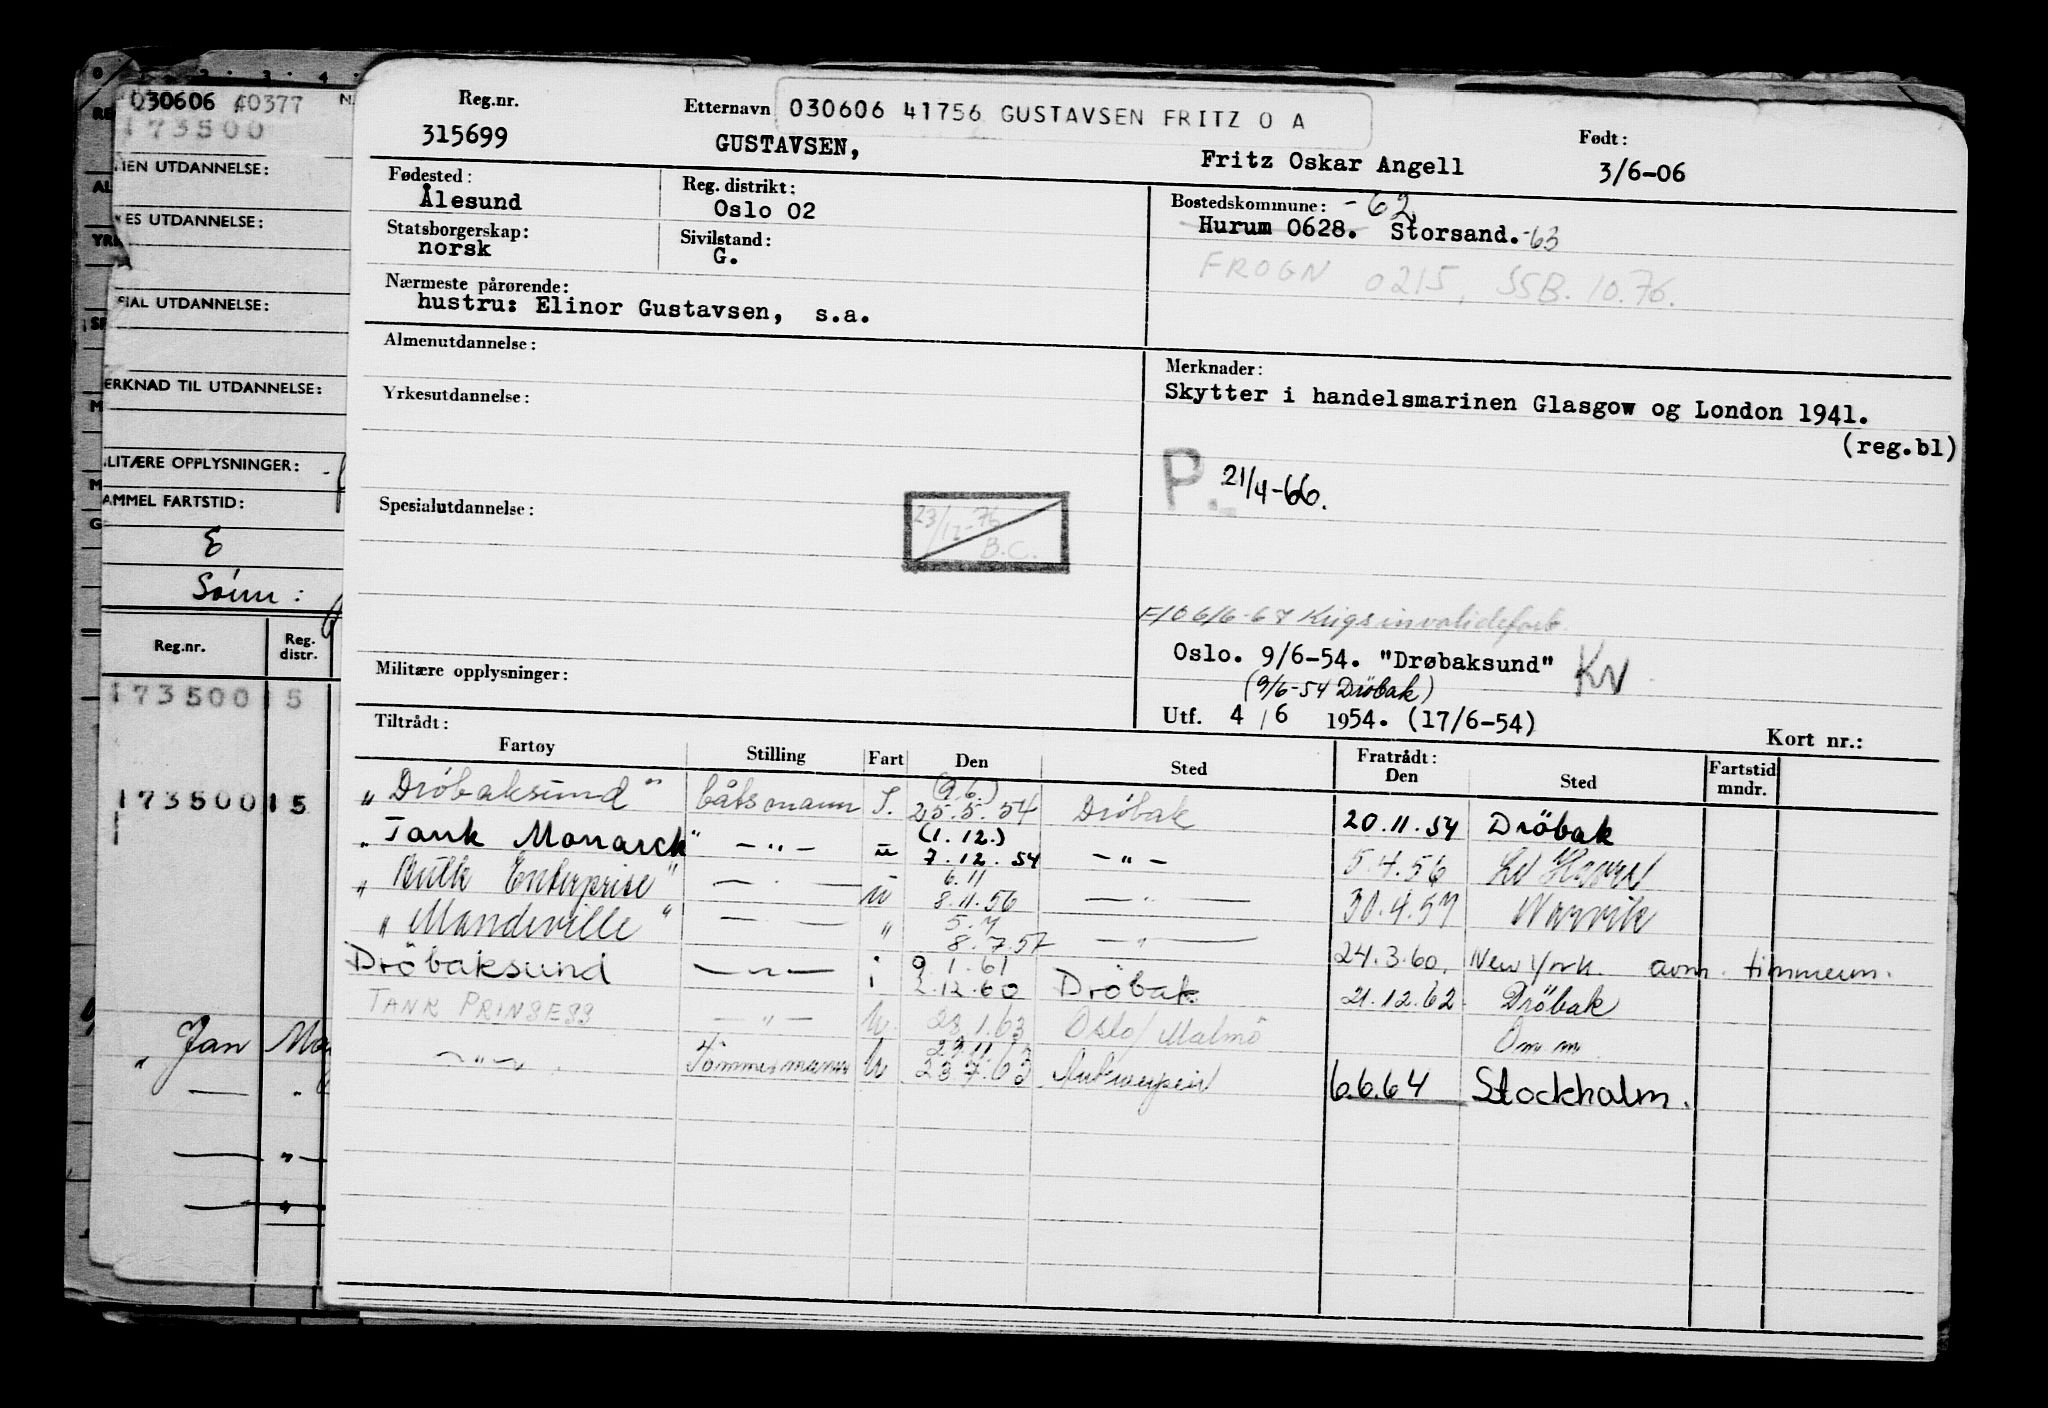 030606 40377 N.
173500
MEN UTDANNELSE:
ES UTDANNELSE:
SIAL UTDANNELSE:
ERKNAD TIL UTDANNELSE:
LITÆRE OPPLYSNINGER:
AMMEL FARTSTID:
E
Reg.nr. Reg. distr.
173500 15
173500 15
" Jan
Reg.nr. Etternavn 030606 41756 GUSTAVSEN FRITZ O A Født:
315699 GUSTAVSEN, Fritz Oskar Angell 3/6-06
Fødested: Reg. distrikt: Bostedskommune: -62
Ålesund Oslo 02 Hurum 0628. Storsand.-63
Statsborgerskap: Sivilstand:
norsk G. FROGN 0215, SSB. 10.76.
Nærmeste pårørende:
hustru: Elinor Gustavsen, s.a.
Almenutdannelse: Merknader:
Skytter i handelsmarinen Glasgow og London 1941.
(reg.bl)
Yrkesutdannelse:
P. 21/4-66.
Spesialutdannelse: 23/12-76 B.C.
F/O 6/6-67 Krigsinvalideforb.
Oslo. 9/6-54. "Drøbaksund" KN
(9/6-54 Dröbak)
Militære opplysninger:
Utf. 4 / 6 1954. (17/6-54)
Tiltrådt: Kort nr.:
Fartøy Stilling Fart Den Sted Fratrådt: Den Sted Fartstid mndr.
(9.6.)
"Dröbaksund" båtsmann I. 25.5.54 Dröbak 20.11.54 Dröbak
(1.12.)
"Tank Monarch" —"— u 7.12.54 —"— 5.4.56 Le Havre
6.11
"Bulk Enterprise" — — u 8.11.56 —"— 30.4.57 Narvik
5.7
"Mandeville" — — " 8.7.57 —"— 24.3.60. New York. avm. timmerm.
9.1.61
Dröbaksund —"— i 2.12.60 Dröbak 21.12.62 Dröbak
TANK PRINSESS —"— U 28.1.63 Oslo/Malmö Om m
29.11.
—"— Tömmermann U 23.7.63 Antwerpen 6.6.64 Stockholm.